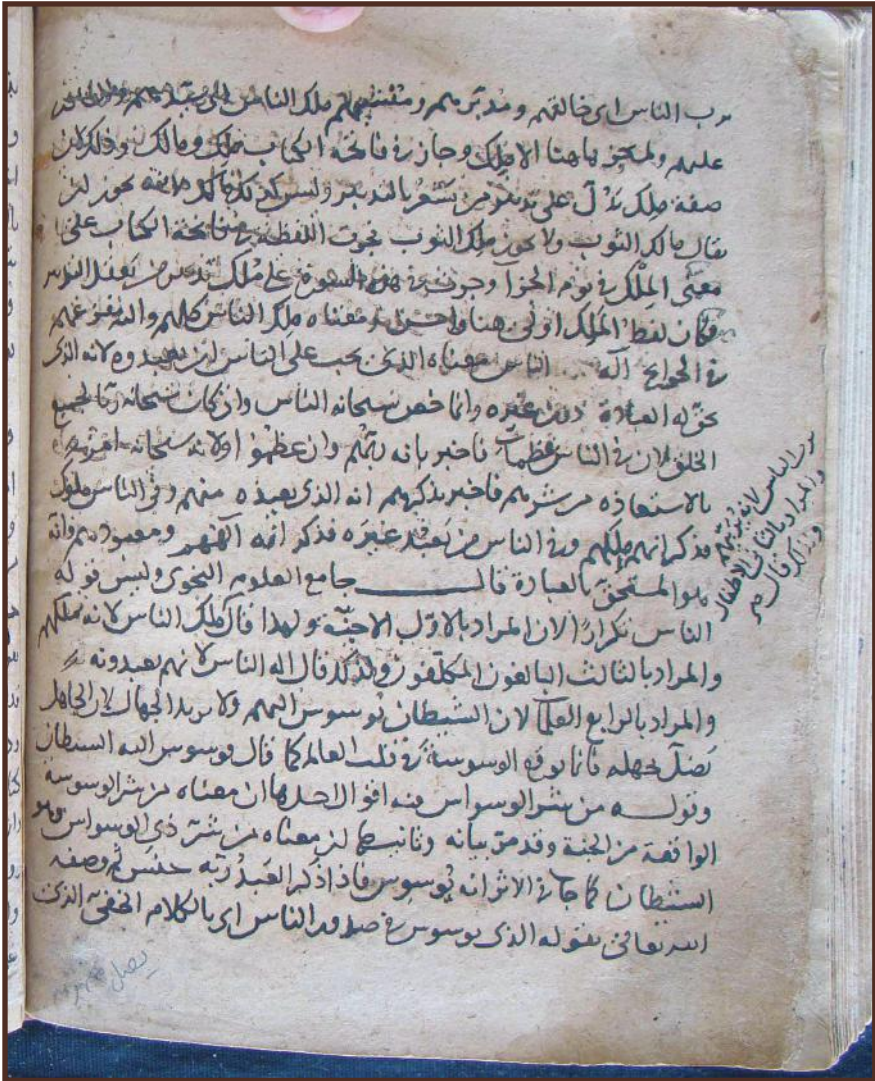 برب الناس اى خالقهم ومدبرهم ومنشيهم ملك الناس
عليهم ولم يجز هاهنا الا ملك وجاز في فاتحة الكتاب ملك ومالك وذلك لان
صفة ملك تدل على تدبير من يشعر بالتدبير وليس كذلك مالك لانه يجوز ان
يقال مالك الثوب ولا يجوز ملك الثوب فجرت اللفظة في فاتحة الكتاب على
معنى الملك في يوم الجزآ وجرت في هذه السورة على ملك تدبير من يعقل التدبير
فكان لفظ الملك اولى هنا واحسن ومعناه ملك الناس كلهم واليه مفزعهم
في الحوايج اله الناس معناه الذى يجب على الناس ان يعبدوه لانه الذى
تحق له العبادة دون غيره وانما خص سبحانه الناس وان كان سبحانه ربا لجميع
الخلق لان في الناس عظمآ فاخبر بانه ربهم وان عظموا اولانه سبحانه امر
بالاستعاذه من شرهم فاخبر بذكرهم انه الذى يعيذه منهم وفى الناس ملوك
فذكر انه ملكهم وفى الناس من يعبد غيره فذكر انه الههم ومعبودهم وانه
هو المستحق بالعبادة قال جامع العلوم النحوى وليس قوله
الناس تكرارا لان المراد بالاول الاجنة ولهذا قال ملك الناس لانه يملكهم
والمراد بالثالث البالغون المكلفون ولذلك قال اله الناس لانهم يعبدونه
والمراد بالرابع العلمآ لان الشيطان يوسوس اليهم ولا يريد الجهال لان الجاهل
يضل بجهله فانما يوقع الوسوسة في قلب العالم كما قال فوسوس اليه الشيطان
وقوله من شر الوسواس فيه اقوال احدها ان معناه من شر الوسوسة
الواقعة من الجنة وقد مر بيانه وثانيها ان معناه من شر ذى الوسواس وهو
الشيطان كما جا في الاثر انه يوسوس فاذا ذكر العبد ربه خنس ثم وصفه
الله تعالى بقوله الذى يوسوس في صدور الناس اى بالكلام الخفى الذى
برب الناس لانه يربيهم
والمراد بالثانى الاطفال
ولذلك قال